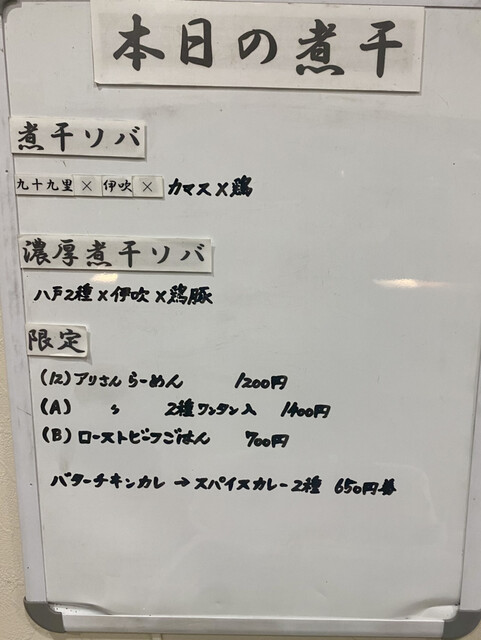 本日の煮干
煮干ソバ
九十九里 × 伊吹 × カマス×鶏
濃厚煮干ソバ
八戸2種×伊吹×鶏豚
限定
(12)アリさんらーめん 1200円
(A) 〃 2種ワンタン入 1400円
(B)ローストビーフごはん 700円
バターチキンカレー→スパイスカレー2種 650円